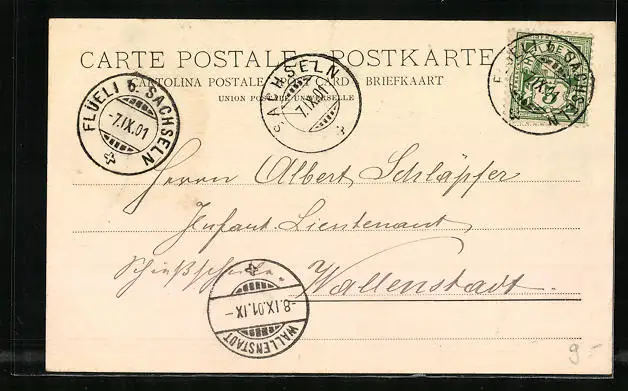 CARTE POSTALE. POSTKARTE.
CARTOLINA POSTALE POSTCARD BRIEFKAART
UNION POSTALE UNIVERSELLE
FLÜELI b. SACHSELN
-7.IX.01
SACHSELN
7.IX.01
FLÜELI b. SACHSELN
5
Herrn Albert Schläpfer
Infant. Lieutenant
Schießschule. Wallenstadt.
-8.IX.01.IX-
WALLENSTADT
9-